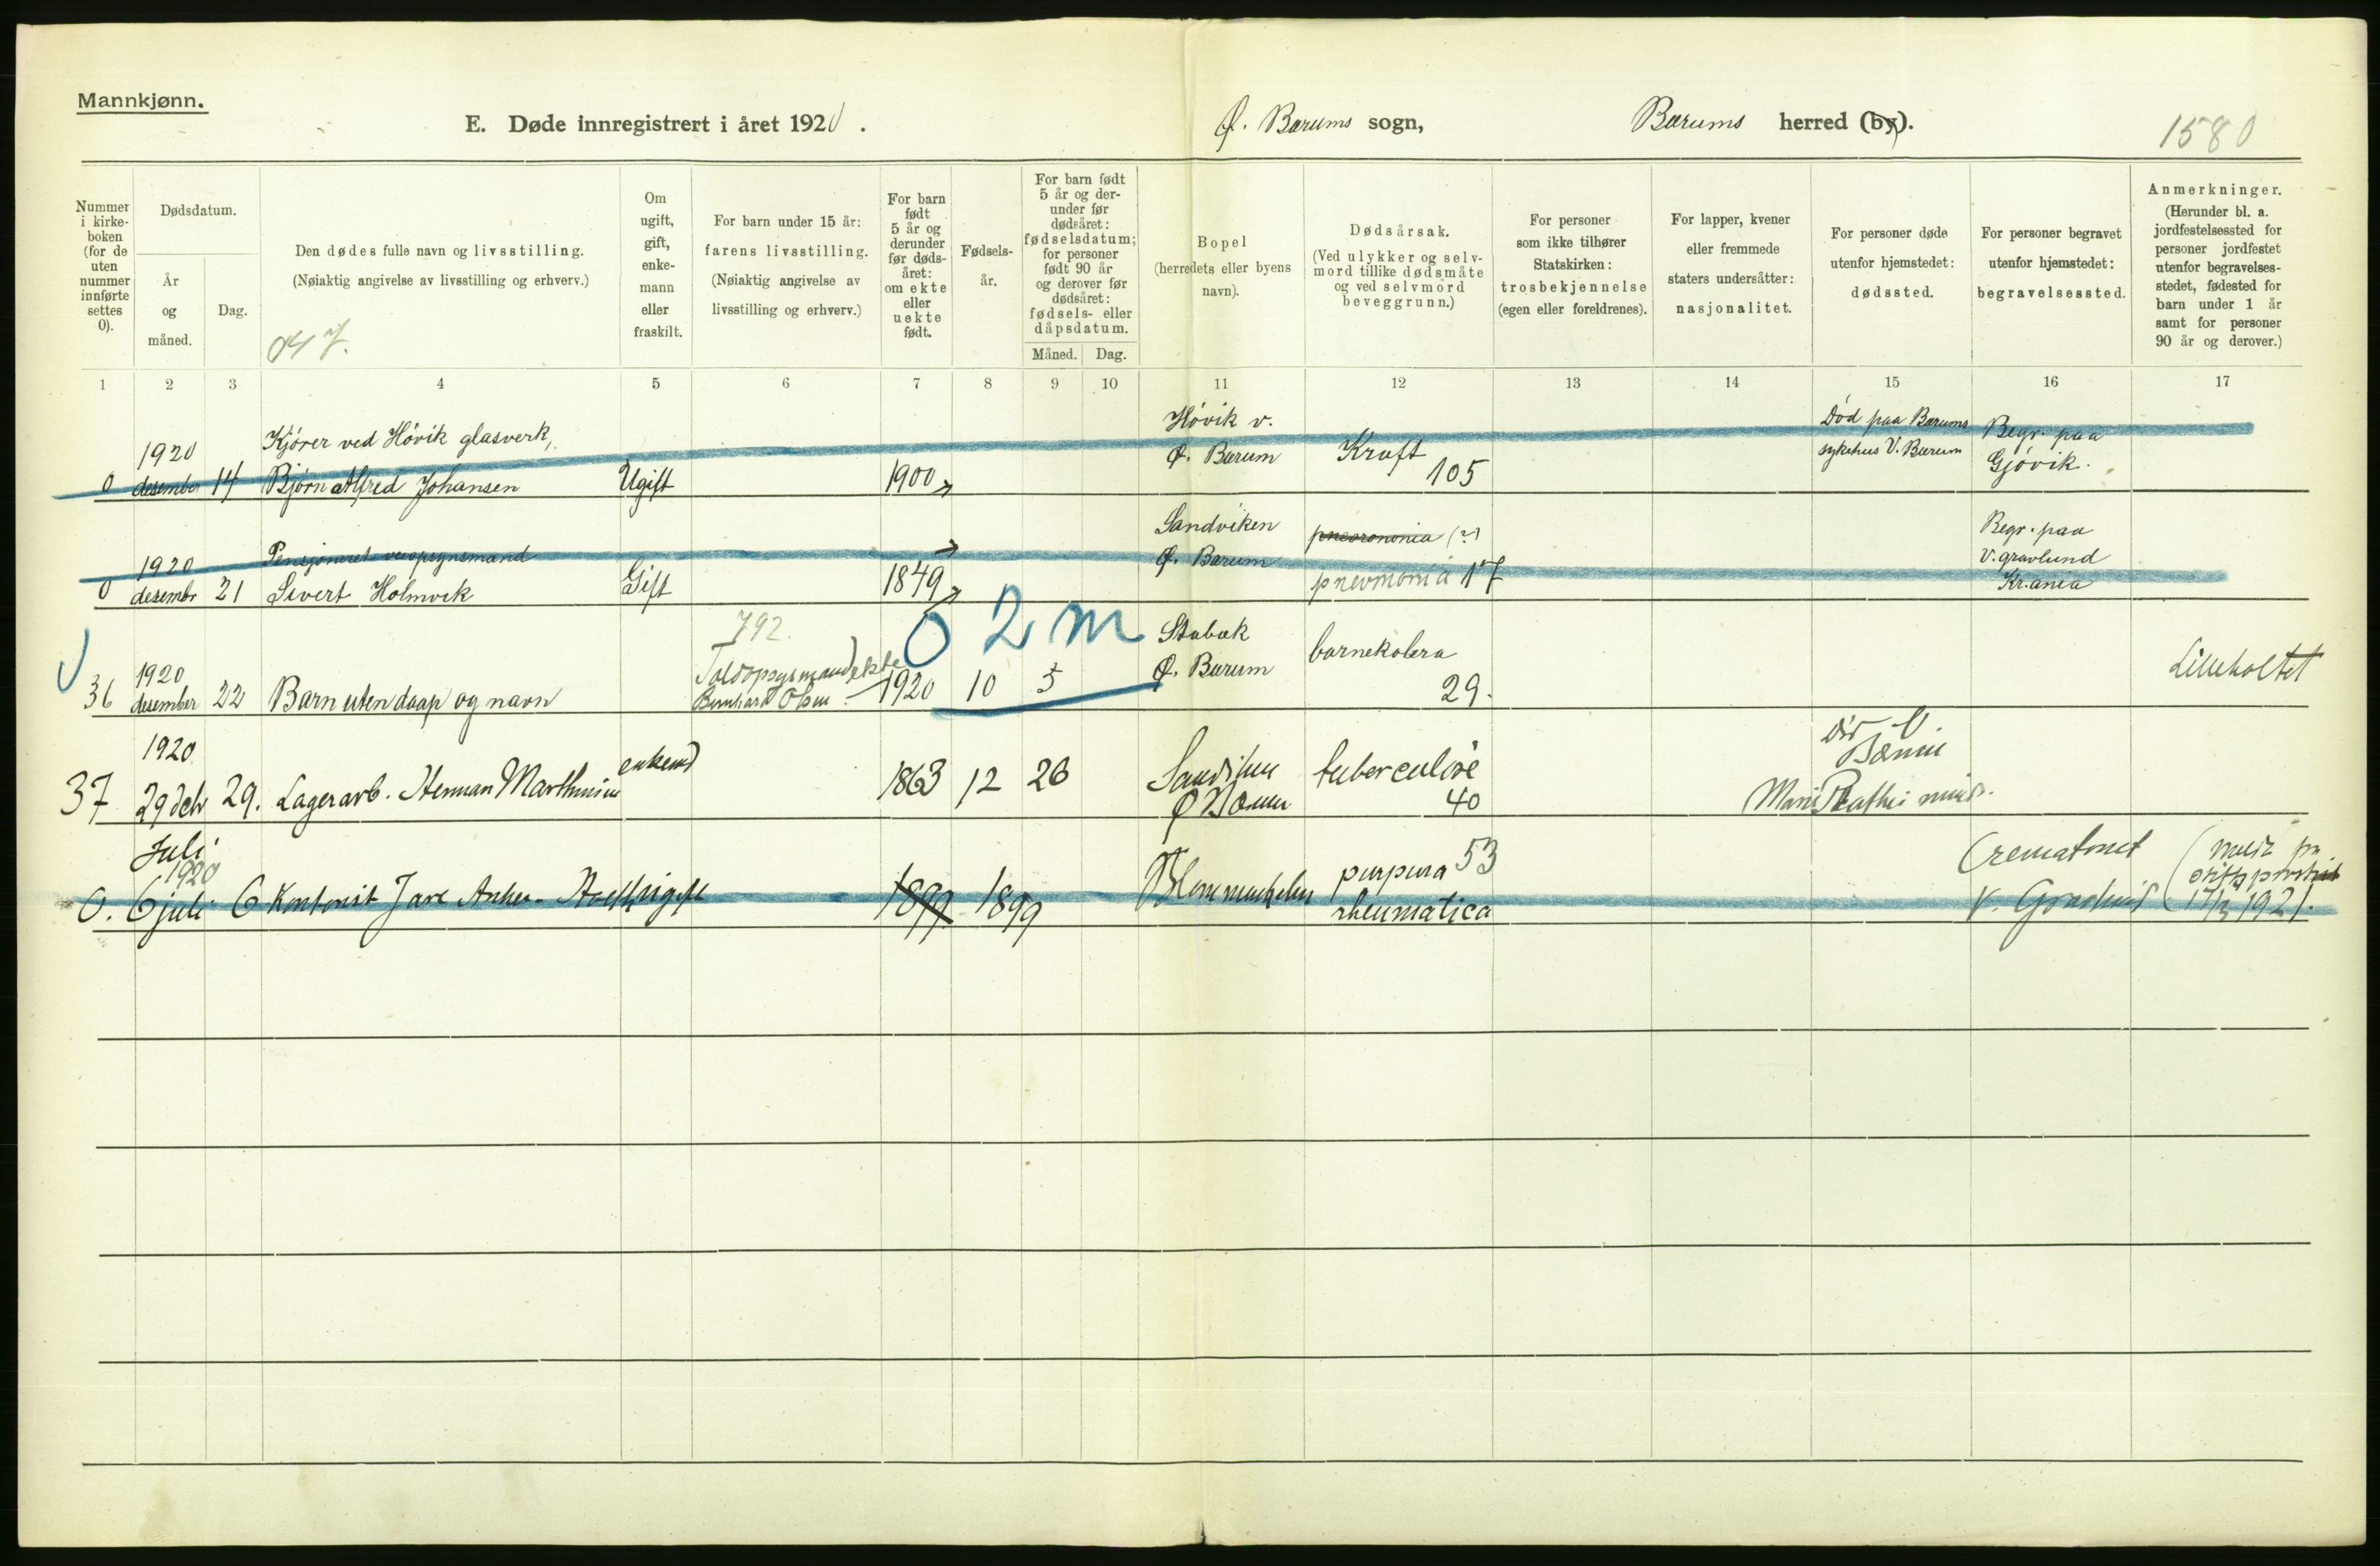 Mannkjønn.
E. Døde innregistrert i året 1920.
Ø. Bærums sogn,
Bærums herred (by).
1580
Nummer i kirke- boken (for de uten nummer innførte settes 0).
Dødsdatum.
År og måned.
Dag.
Den dødes fulle navn og livsstilling.
(Nøiaktig angivelse av livsstilling og erhverv.)
047.
Om ugift, gift, enke- mann eller fraskilt.
For barn under 15 år:
farens livsstilling.
(Nøiaktig angivelse av livsstilling og erhverv.)
For barn født 5 år og derunder før døds- året: om ekte eller uekte født.
Fødsels- år.
For barn født 5 år og der- under før dødsåret: fødselsdatum; for personer født 90 år og derover før dødsåret: fødsels- eller dåpsdatum.
Måned.
Dag.
Bopel (herredets eller byens navn).
Dødsårsak.
(Ved ulykker og selv- mord tillike dødsmåte og ved selvmord beveggrunn.)
For personer som ikke tilhører Statskirken: trosbekjennelse (egen eller foreldrenes).
For lapper, kvener eller fremmede staters undersåtter: nasjonalitet.
For personer døde utenfor hjemstedet: dødssted.
For personer begravet utenfor hjemstedet: begravelsessted.
Anmerkninger.
(Herunder bl. a. jordfestelsessted for personer jordfestet utenfor begravelses- stedet, fødested for barn under 1 år samt for personer 90 år og derover.)
1 2 3 4 5 6 7 8 9 10 11 12 13 14 15 16 17
1920 Kjører ved Hövik glasverk, Hövik v. Död paa Bærums Begr. paa
0 desember 14 Bjørn Alfred Johansen Ugift 1900 Ø. Bærum Kræft 105 sykehus V. Bærum Gjövik.
1920 Pensjoneret Sandviken (?) Begr. paa
0 desembr 21 Sivert Holmvik Gift 1849 Ø. Bærum pnevmonia 17 V. gravlund Kr.ania
792. 0 2 m
1920 Toldopsysmand ekte Stabæk barnekolera Lilleholtet
36 desember 22 Barn uten daap og navn Bernhard Olsen 1920 10 5 Ø. Bærum 29.
1920 enkemd V. Bærum
37 29 29. Lagerarb. Herman Marthinius 1863 12 26 Ø Bærum tuberculose 40
Juli 1920 purpura 53 Crematoriet
0. 6 juli 6 Kontorist ugift 1899 1899 Blommenholm rheumatica V. Gravlund 1921.